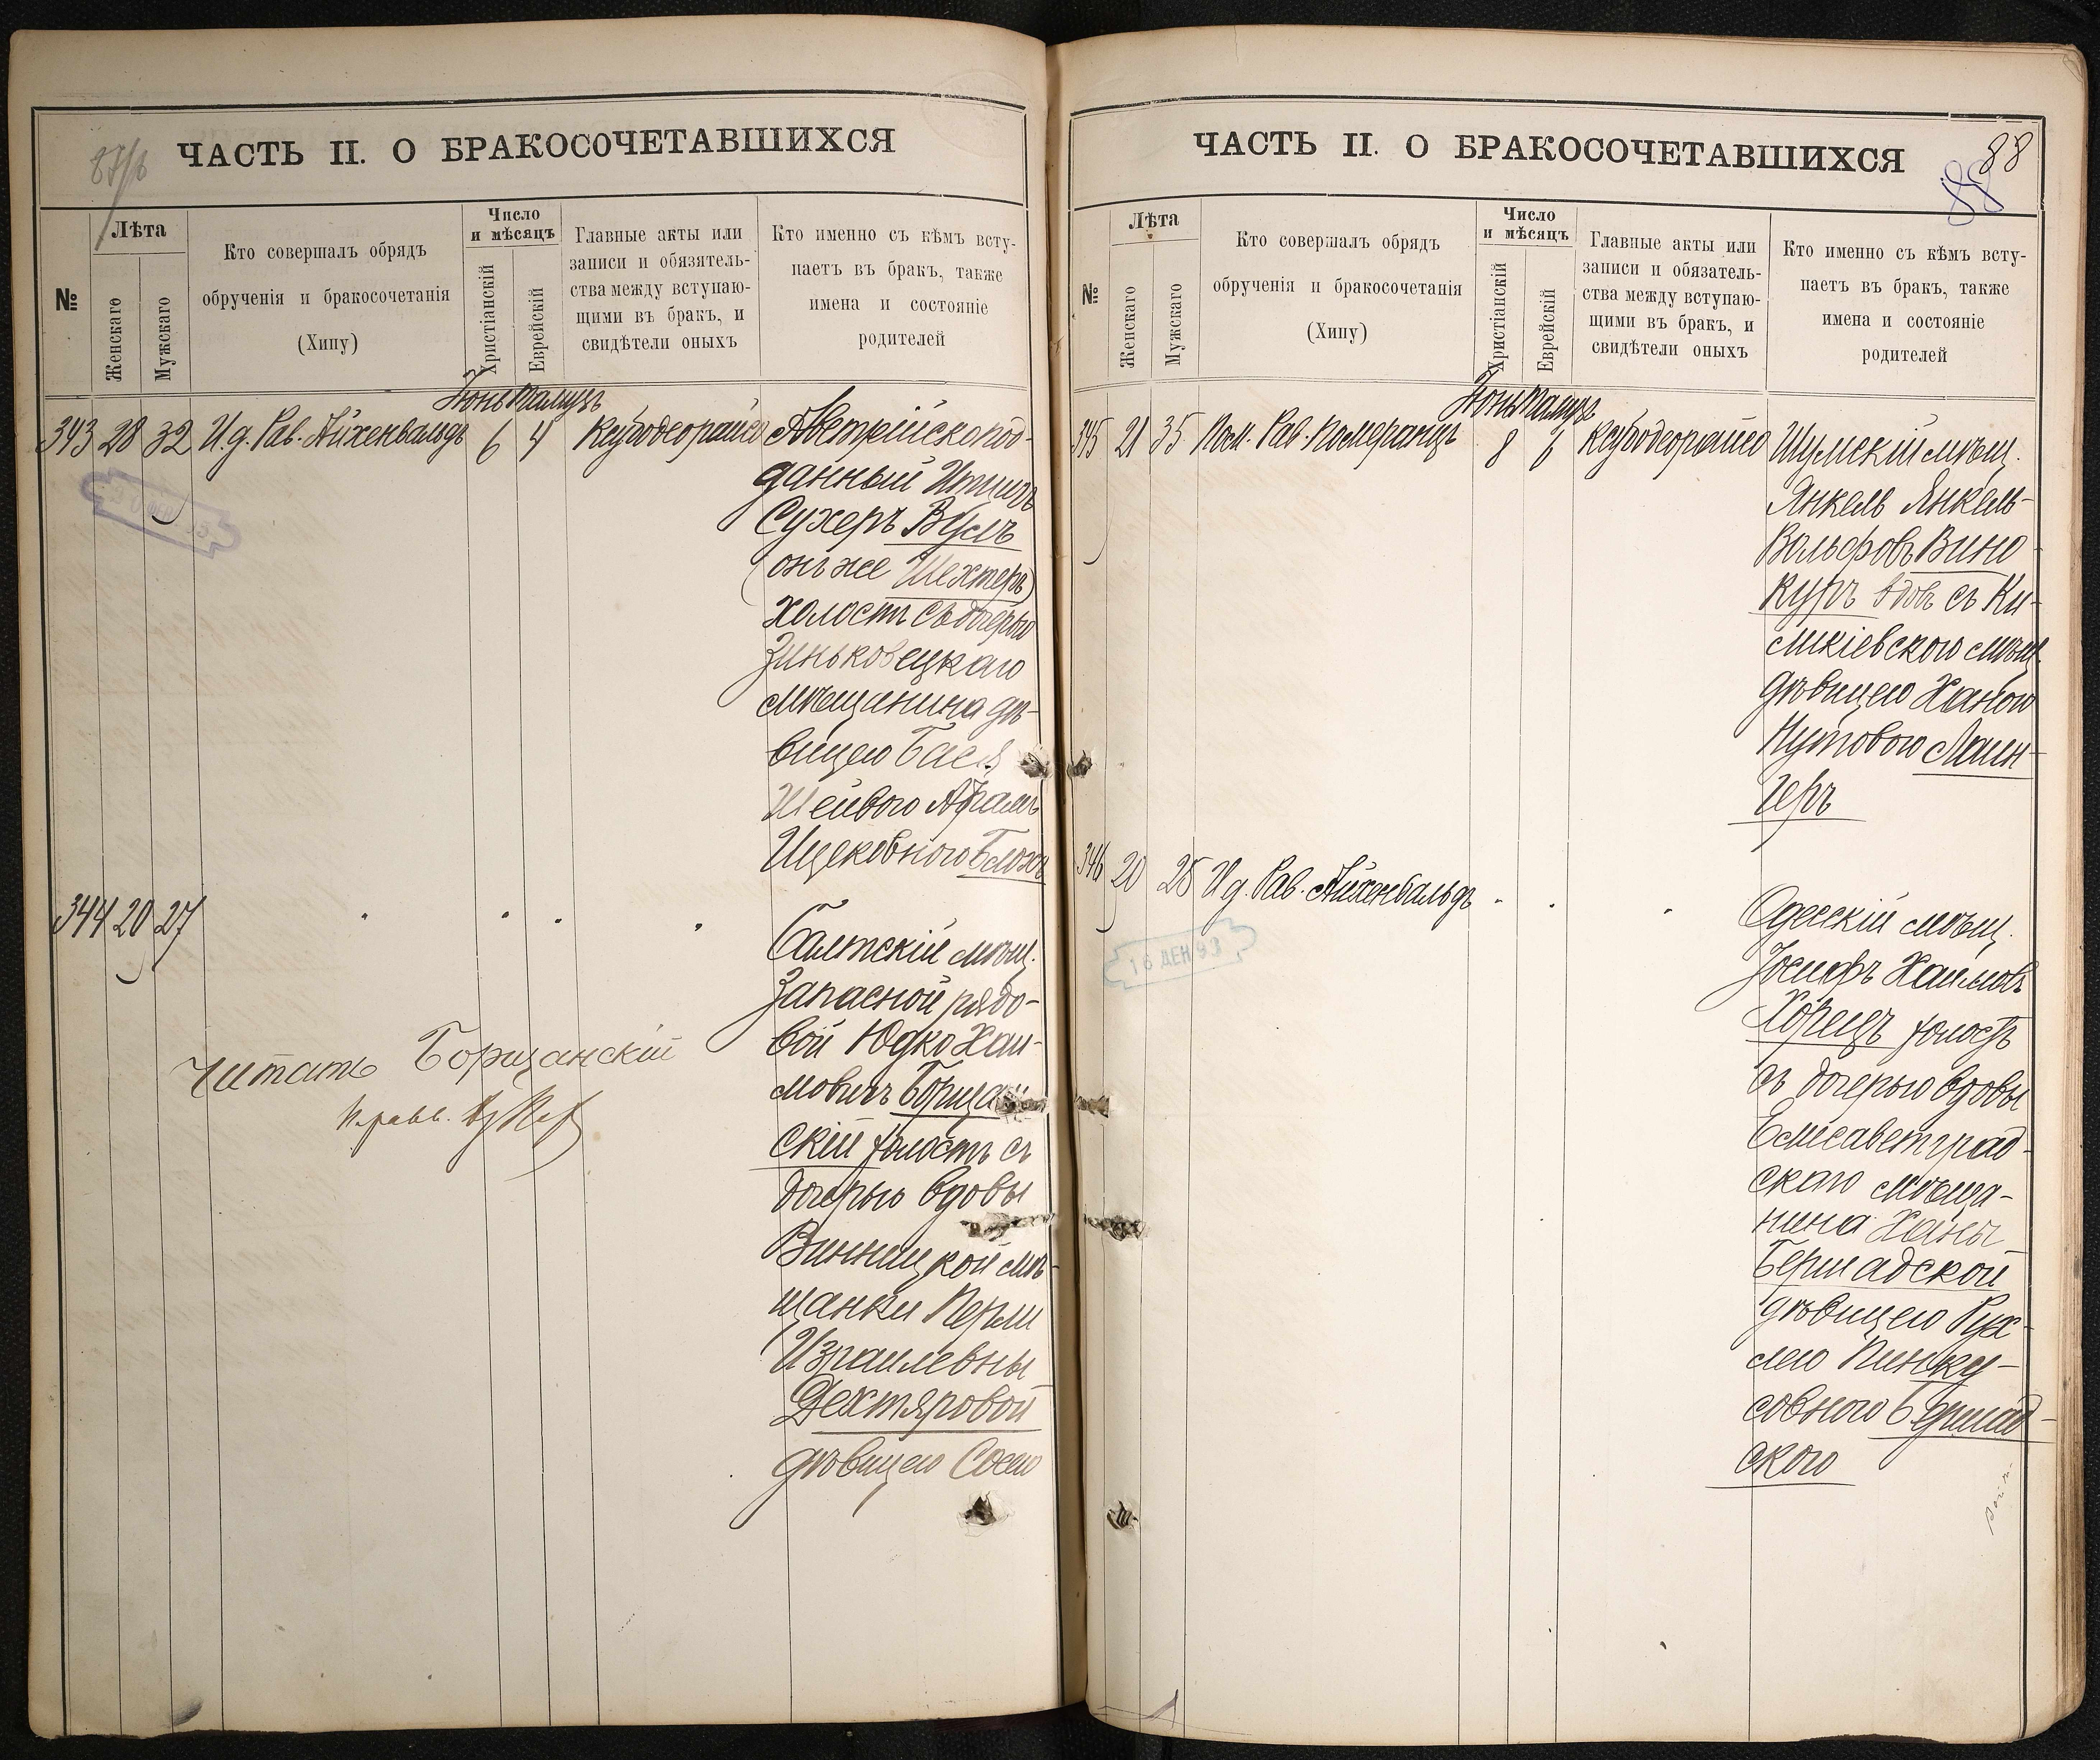 87/b
ЧАСТЬ II. О БРАКОСОЧЕТАВШИХСЯ
№
Лѣта
Женскаго
Мужскаго
Кто совершалъ обрядъ
обрученія и бракосочетанія
(Хипу)
Число
и мѣсяцъ
Христіанскій
Еврейскій
Главные акты или
записи и обязятель-
ства между вступаю-
щими въ бракъ, и
свидѣтели оныхъ
Кто именно съ кѣмъ всту-
паетъ въ бракъ, также
имена и состояніе
родителей
Іюнь Тамузъ
343 28 32 И.д. Рав. Айхенвальдъ 6 4 Ксубодеорайсо Австрійско под-
данный Ицикъ
Сухеръ Вуслъ
(онъ же Шехтеръ)
холостъ съ дочерью
Зиньковецкаго
мѣщанина дѣ-
вицею Бася
Шейвою Абрамъ
Ицековною Блохъ
344 20 27 " " " "
Балтскій мѣщ.
Запасной рядо-
вой Юдко Хаи-
мовичъ Борщан
скій холостъ съ
дочерью вдовы
Винницкой мѣ-
щанки Перли
Израилевны
Дехтяровой
дѣвицею Сосею
Читать Борщанскій
И. равв.
ЧАСТЬ II. О БРАКОСОЧЕТАВШИХСЯ
88
88
№
Лѣта
Женскаго
Мужскаго
Кто совершалъ обрядъ
обрученія и бракосочетанія
(Хипу)
Число
и мѣсяцъ
Христіанскій
Еврейскій
Главные акты или
записи и обязатель-
ства между вступаю-
щими въ бракъ, и
свидѣтели оныхъ
Кто именно съ кѣмъ всту-
паетъ въ бракъ, также
имена и состояніе
родителей
Іюнь Тамузъ
345 21 35 Пом. Рав. Померанцъ 8 6 Ксубодеорайсо Шумскій мѣщ.
Янкель Янкель-
Вольфовъ Вино-
куръ вдов съ Ки-
ликіевскою мѣщ.
дѣвицею Ханою
Нутовою Лаин-
геръ
346 20 25 И д. Рав. Айхенвальдъ " " "
Одесскій мѣщ.
Іосифъ Хаимовъ
Корецъ холостъ
съ дочерью вдовы
Елисаветград-
скаго мѣща-
нина Ханы
Бершадской
дѣвицею Рух-
лею Пинку-
совною Бершад-
скою
16 ДЕК 93